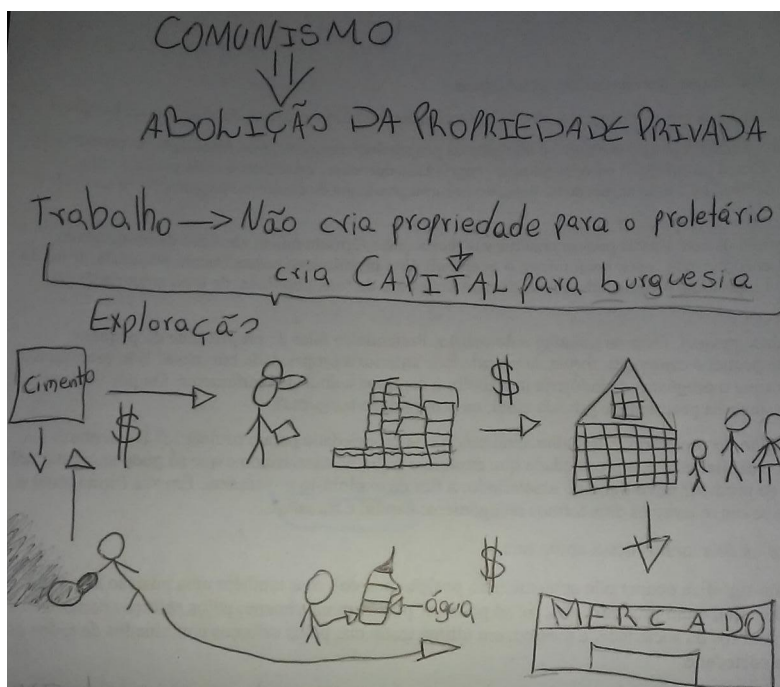 COMUNISMO
ABOLIÇÃO DA PROPRIEDADE PRIVADA
Trabalho → Não cria propriedade para o proletário
cria CAPITAL para burguesia
Exploração
Cimento
$
$
água
$
MERCADO